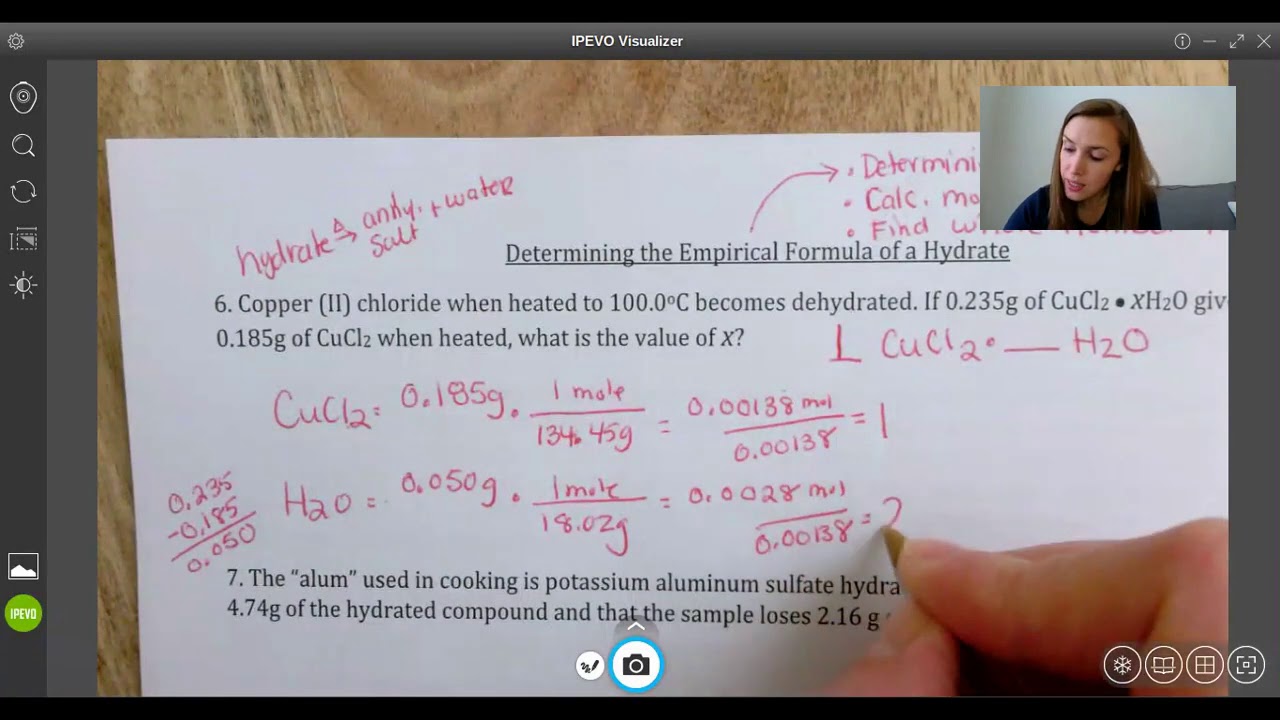 IPEVO Visualizer
hydrate Δ→ anhy. + water
salt
• Determini
• Calc. mo
• Find
Determining the Empirical Formula of a Hydrate
6. Copper (II) chloride when heated to 100.0ºC becomes dehydrated. If 0.235g of CuCl2 • XH2O giv
0.185g of CuCl2 when heated, what is the value of X?
1 CuCl2 • ___ H2O
CuCl2 = 0.185g • 1 mole / 134.45g = 0.00138 mol / 0.00138 = 1
H2O = 0.050g • 1 mole / 18.02g = 0.0028 mol / 0.00138 = 2
0.235
-0.185
0.050
7. The “alum” used in cooking is potassium aluminum sulfate hydra
4.74g of the hydrated compound and that the sample loses 2.16 g
IPEVO